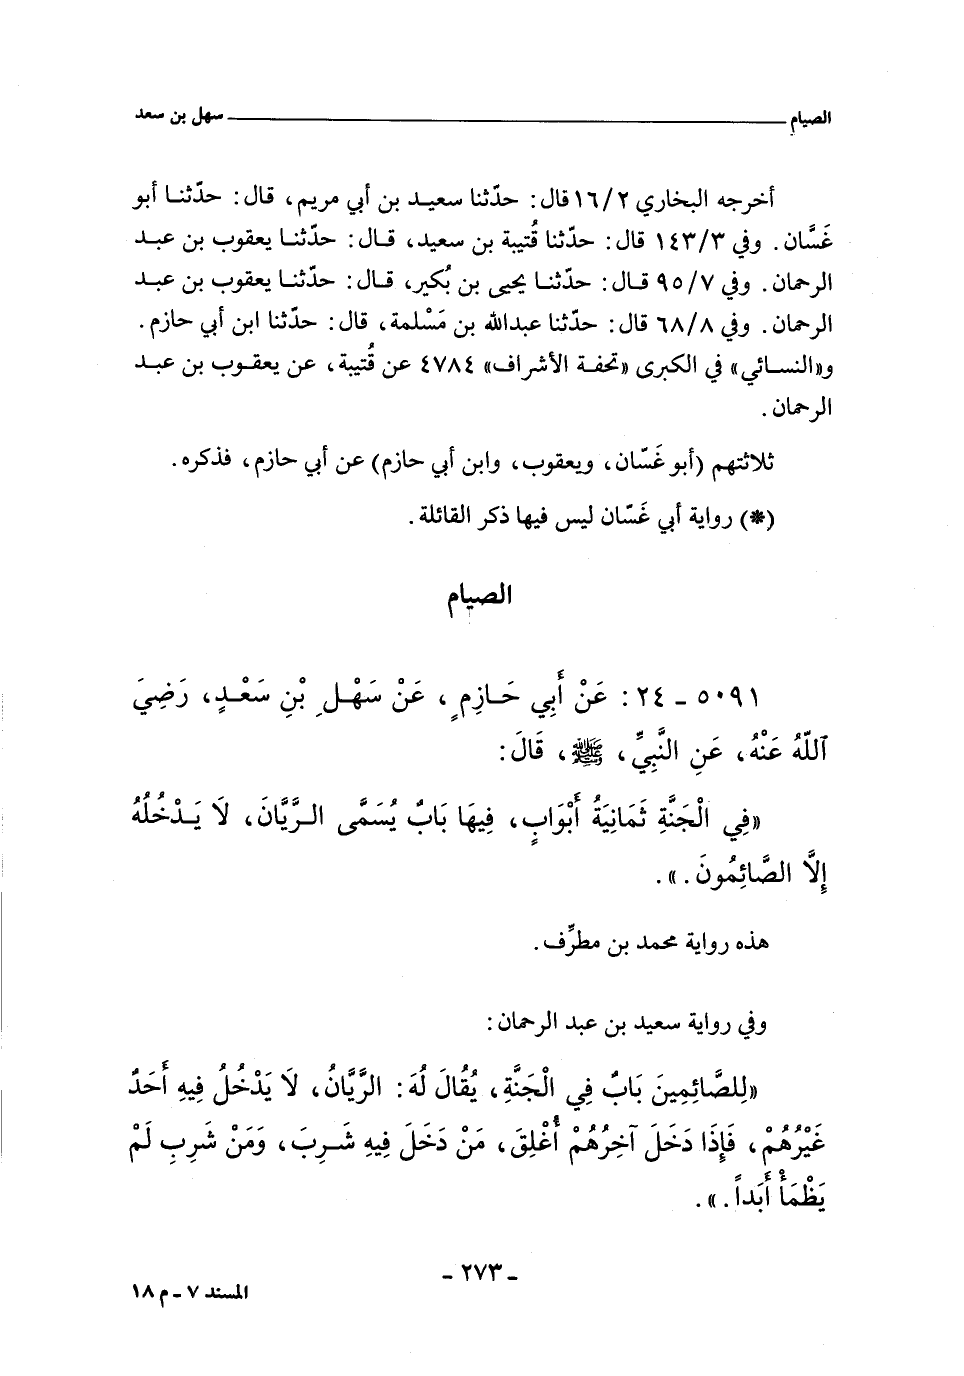 الصيام ــــــــــــــــــــ سهل بن سعد
أخرجه البخاري ١٦/٢ قال: حدّثنا سعيد بن أبي مريم، قال: حدّثنا أبو
غَسَّان. وفي ١٤٣/٣ قال: حدّثنا قُتيبة بن سعيد، قال: حدّثنا يعقوب بن عبد
الرحمان. وفي ٩٥/٧ قال: حدّثنا يحيى بن بُكير، قال: حدّثنا يعقوب بن عبد
الرحمان. وفي ٦٨/٨ قال: حدّثنا عبدالله بن مَسْلمة، قال: حدّثنا ابن أبي حازم.
و«النسائي» في الكبرى «تحفة الأشراف» ٤٧٨٤ عن قُتيبة، عن يعقوب بن عبد
الرحمان.
ثلاثتهم (أبو غَسّان، ويعقوب، وابن أبي حازم) عن أبي حازم، فذكره.
(*) رواية أبي غَسّان ليس فيها ذكر القائلة.
الصيام
٥٠٩١ - ٢٤: عَنْ أَبِي حَازِمٍ، عَنْ سَهْلِ بْنِ سَعْدٍ، رَضِيَ
ٱللّهُ عَنْهُ، عَنِ النَّبِيِّ، ﷺ، قَالَ:
«فِي الْجَنَّةِ ثَمَانِيَةُ أَبْوَابٍ، فِيهَا بَابٌ يُسَمَّى الرَّيَّانَ، لَا يَدْخُلُهُ
إِلَّا الصَّائِمُونَ.».
هذه رواية محمد بن مطرِّف.
وفي رواية سعيد بن عبد الرحمان:
«لِلصَّائِمِينَ بَابٌ فِي الْجَنَّةِ، يُقَالَ لَهُ: الرَّيَّانُ، لَا يَدْخُلُ فِيهِ أَحَدٌ
غَيْرُهُمْ، فَإِذَا دَخَلَ آخِرُهُمْ أُغْلِقَ، مَنْ دَخَلَ فِيهِ شَرِبَ، وَمَنْ شَرِبِ لَمْ
يَظْمَأْ أَبَداً.».
- ٢٧٣ -
المسند ٧ - م ١٨